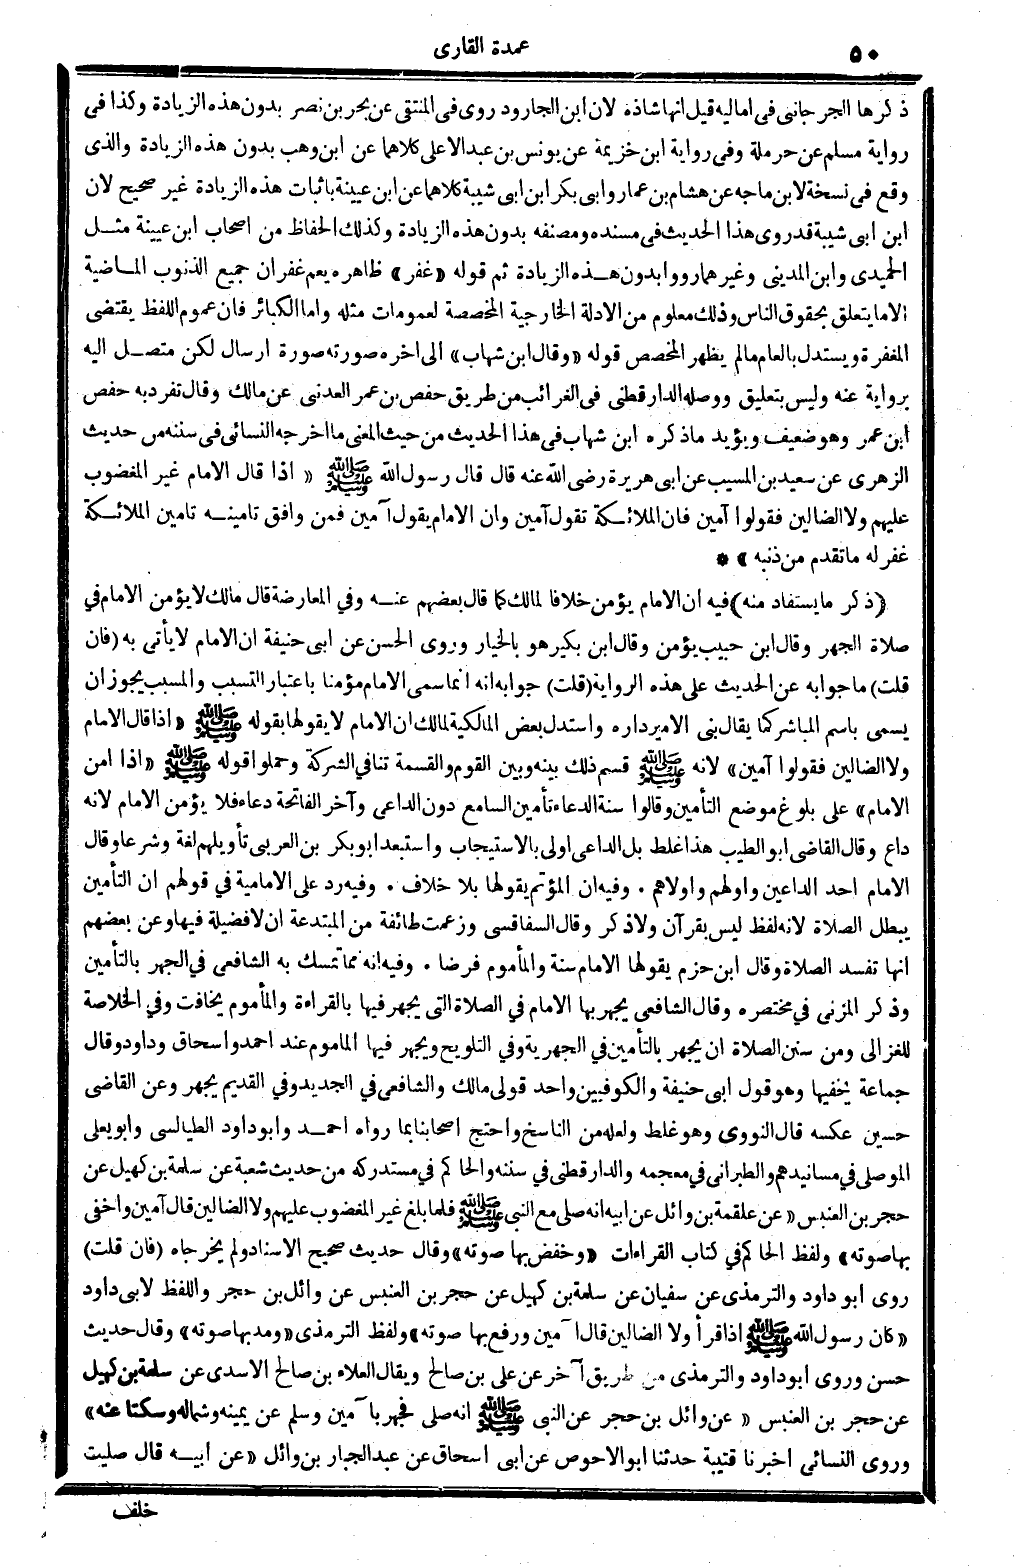 ٥٠
عمدة القارى
ذكرها الجرجانى فى اماليه قيل انها شاذه لان ابن الجارود روى فى المنتقى عن بحر بن نصر بدون هذه الزيادة وكذا فى
رواية مسلم عن حرملة وفى رواية ابن خزيمة عن يونس بن عبد الاعلى كلاهما عن ابن وهب بدون هذه الزيادة والذى
وقع فى نسخة لابن ماجه عن هشام بن عمار وابى بكر ابن ابى شيبة كلاهما عن ابن عيينة باثبات هذه الزيادة غير صحيح لان
ابن ابى شيبة قد روى هذا الحديث فى مسنده ومصنفه بدون هذه الزيادة وكذلك الحفاظ من اصحاب ابن عيينة مثل
الحميدى وابن المدينى وغيرهما رووا بدون هذه الزيادة ثم قوله «غفر» ظاهره يعم غفران جميع الذنوب الماضية
الا ما يتعلق بحقوق الناس وذلك معلوم من الادلة الخارجية المخصصة لعمومات مثله واما الكبائر فان عموم اللفظ يقتضى
المغفرة ويستدل بالعام مالم يظهر المخصص قوله «وقال ابن شهاب» الى اخره صورته صورة ارسال لكن متصل اليه
برواية عنه وليس بتعليق ووصله الدارقطنى فى الغرائب من طريق حفص بن عمر العدنى عن مالك وقال تفرد به حفص
ابن عمر وهو ضعيف ويؤيد ما ذكره ابن شهاب فى هذا الحديث من حيث المعنى ما اخرجه النسائى فى سننه من حديث
الزهرى عن سعيد بن المسيب عن ابى هريرة رضى الله عنه قال قال رسول الله ﷺ «اذا قال الامام غير المغضوب
عليهم ولا الضالين فقولوا آمين فان الملائكة تقول آمين وان الامام يقول آمين فمن وافق تامينه تامين الملائكة
غفر له ما تقدم من ذنبه» *
(ذكر ما يستفاد منه) فيه ان الامام يؤمن خلافا لمالك كما قال بعضهم عنه وفي المعارضة قال مالك لا يؤمن الامام في
صلاة الجهر وقال ابن حبيب يؤمن وقال ابن بكير هو بالخيار وروى الحسن عن ابى حنيفة ان الامام لا يأتى به (فان
قلت) ما جوابه عن الحديث على هذه الرواية (قلت) جوابه انه انما سمى الامام مؤمنا باعتبار التسبب والمسبب يجوز ان
يسمى باسم المباشر كما يقال بنى الامير داره واستدل بعض المالكية لمالك ان الامام لا يقولها بقوله ﷺ «اذا قال الامام
ولا الضالين فقولوا آمين» لانه ﷺ قسم ذلك بينه وبين القوم والقسمة تنافي الشركة وحملوا قوله ﷺ «اذا امن
الامام» على بلوغ موضع التأمين وقالوا سنة الدعاء تأمين السامع دون الداعى وآخر الفاتحة دعاء فلا يؤمن الامام لانه
داع وقال القاضى ابو الطيب هذا غلط بل الداعى اولى بالاستيجاب واستبعد ابو بكر بن العربى تأويلهم لغة وشرعا وقال
الامام احد الداعين واولهم واولاهم . وفيه ان المؤتم يقولها بلا خلاف . وفيه رد على الامامية في قولهم ان التأمين
يبطل الصلاة لانه لفظ ليس بقرآن ولا ذكر وقال السفاقسى وزعمت طائفة من المبتدعة ان لا فضيلة فيها وعن بعضهم
انها تفسد الصلاة وقال ابن حزم يقولها الامام سنة والمأموم فرضا . وفيه انه مما تمسك به الشافعى في الجهر بالتأمين
وذكر المزنى في مختصره وقال الشافعى يجهر بها الامام في الصلاة التى يجهر فيها بالقراءة والمأموم يخافت وفي الخلاصة
للغزالى ومن سنن الصلاة ان يجهر بالتأمين في الجهرية وفي التلويح ويجهر فيها الماموم عند احمد واسحاق وداود وقال
جماعة يخفيها وهو قول ابى حنيفة والكوفيين واحد قولى مالك والشافعى في الجديد وفي القديم يجهر وعن القاضى
حسين عكسه قال النووى وهو غلط ولعله من الناسخ واحتج اصحابنا بما رواه احمد وابو داود الطيالسى وابو يعلى
الموصلى في مسانيدهم والطبرانى في معجمه والدارقطنى في سننه والحاكم في مستدركه من حديث شعبة عن سلمة بن كهيل عن
حجر بن العنبس «عن علقمة بن وائل عن ابيه انه صلى مع النبى ﷺ فلما بلغ غير المغضوب عليهم ولا الضالين قال آمين واخفى
بها صوته» ولفظ الحاكم في كتاب القراءات «وخفض بها صوته» وقال حديث صحيح الاسناد ولم يخرجاه (فان قلت)
روى ابو داود والترمذى عن سفيان عن سلمة بن كهيل عن حجر بن العنبس عن وائل بن حجر واللفظ لابى داود
«كان رسول الله ﷺ اذا قرأ ولا الضالين قال آمين ورفع بها صوته» ولفظ الترمذى «ومد بها صوته» وقال حديث
حسن وروى ابو داود والترمذى من طريق آخر عن على بن صالح ويقال العلاء بن صالح الاسدى عن سلمة بن كهيل
عن حجر بن العنبس «عن وائل بن حجر عن النبى ﷺ انه صلى فجهر بآمين وسلم عن يمينه وشماله وسكتا عنه»
وروى النسائى اخبرنا قتيبة حدثنا ابو الاحوص عن ابى اسحاق عن عبد الجبار بن وائل «عن ابيه قال صليت
خلف